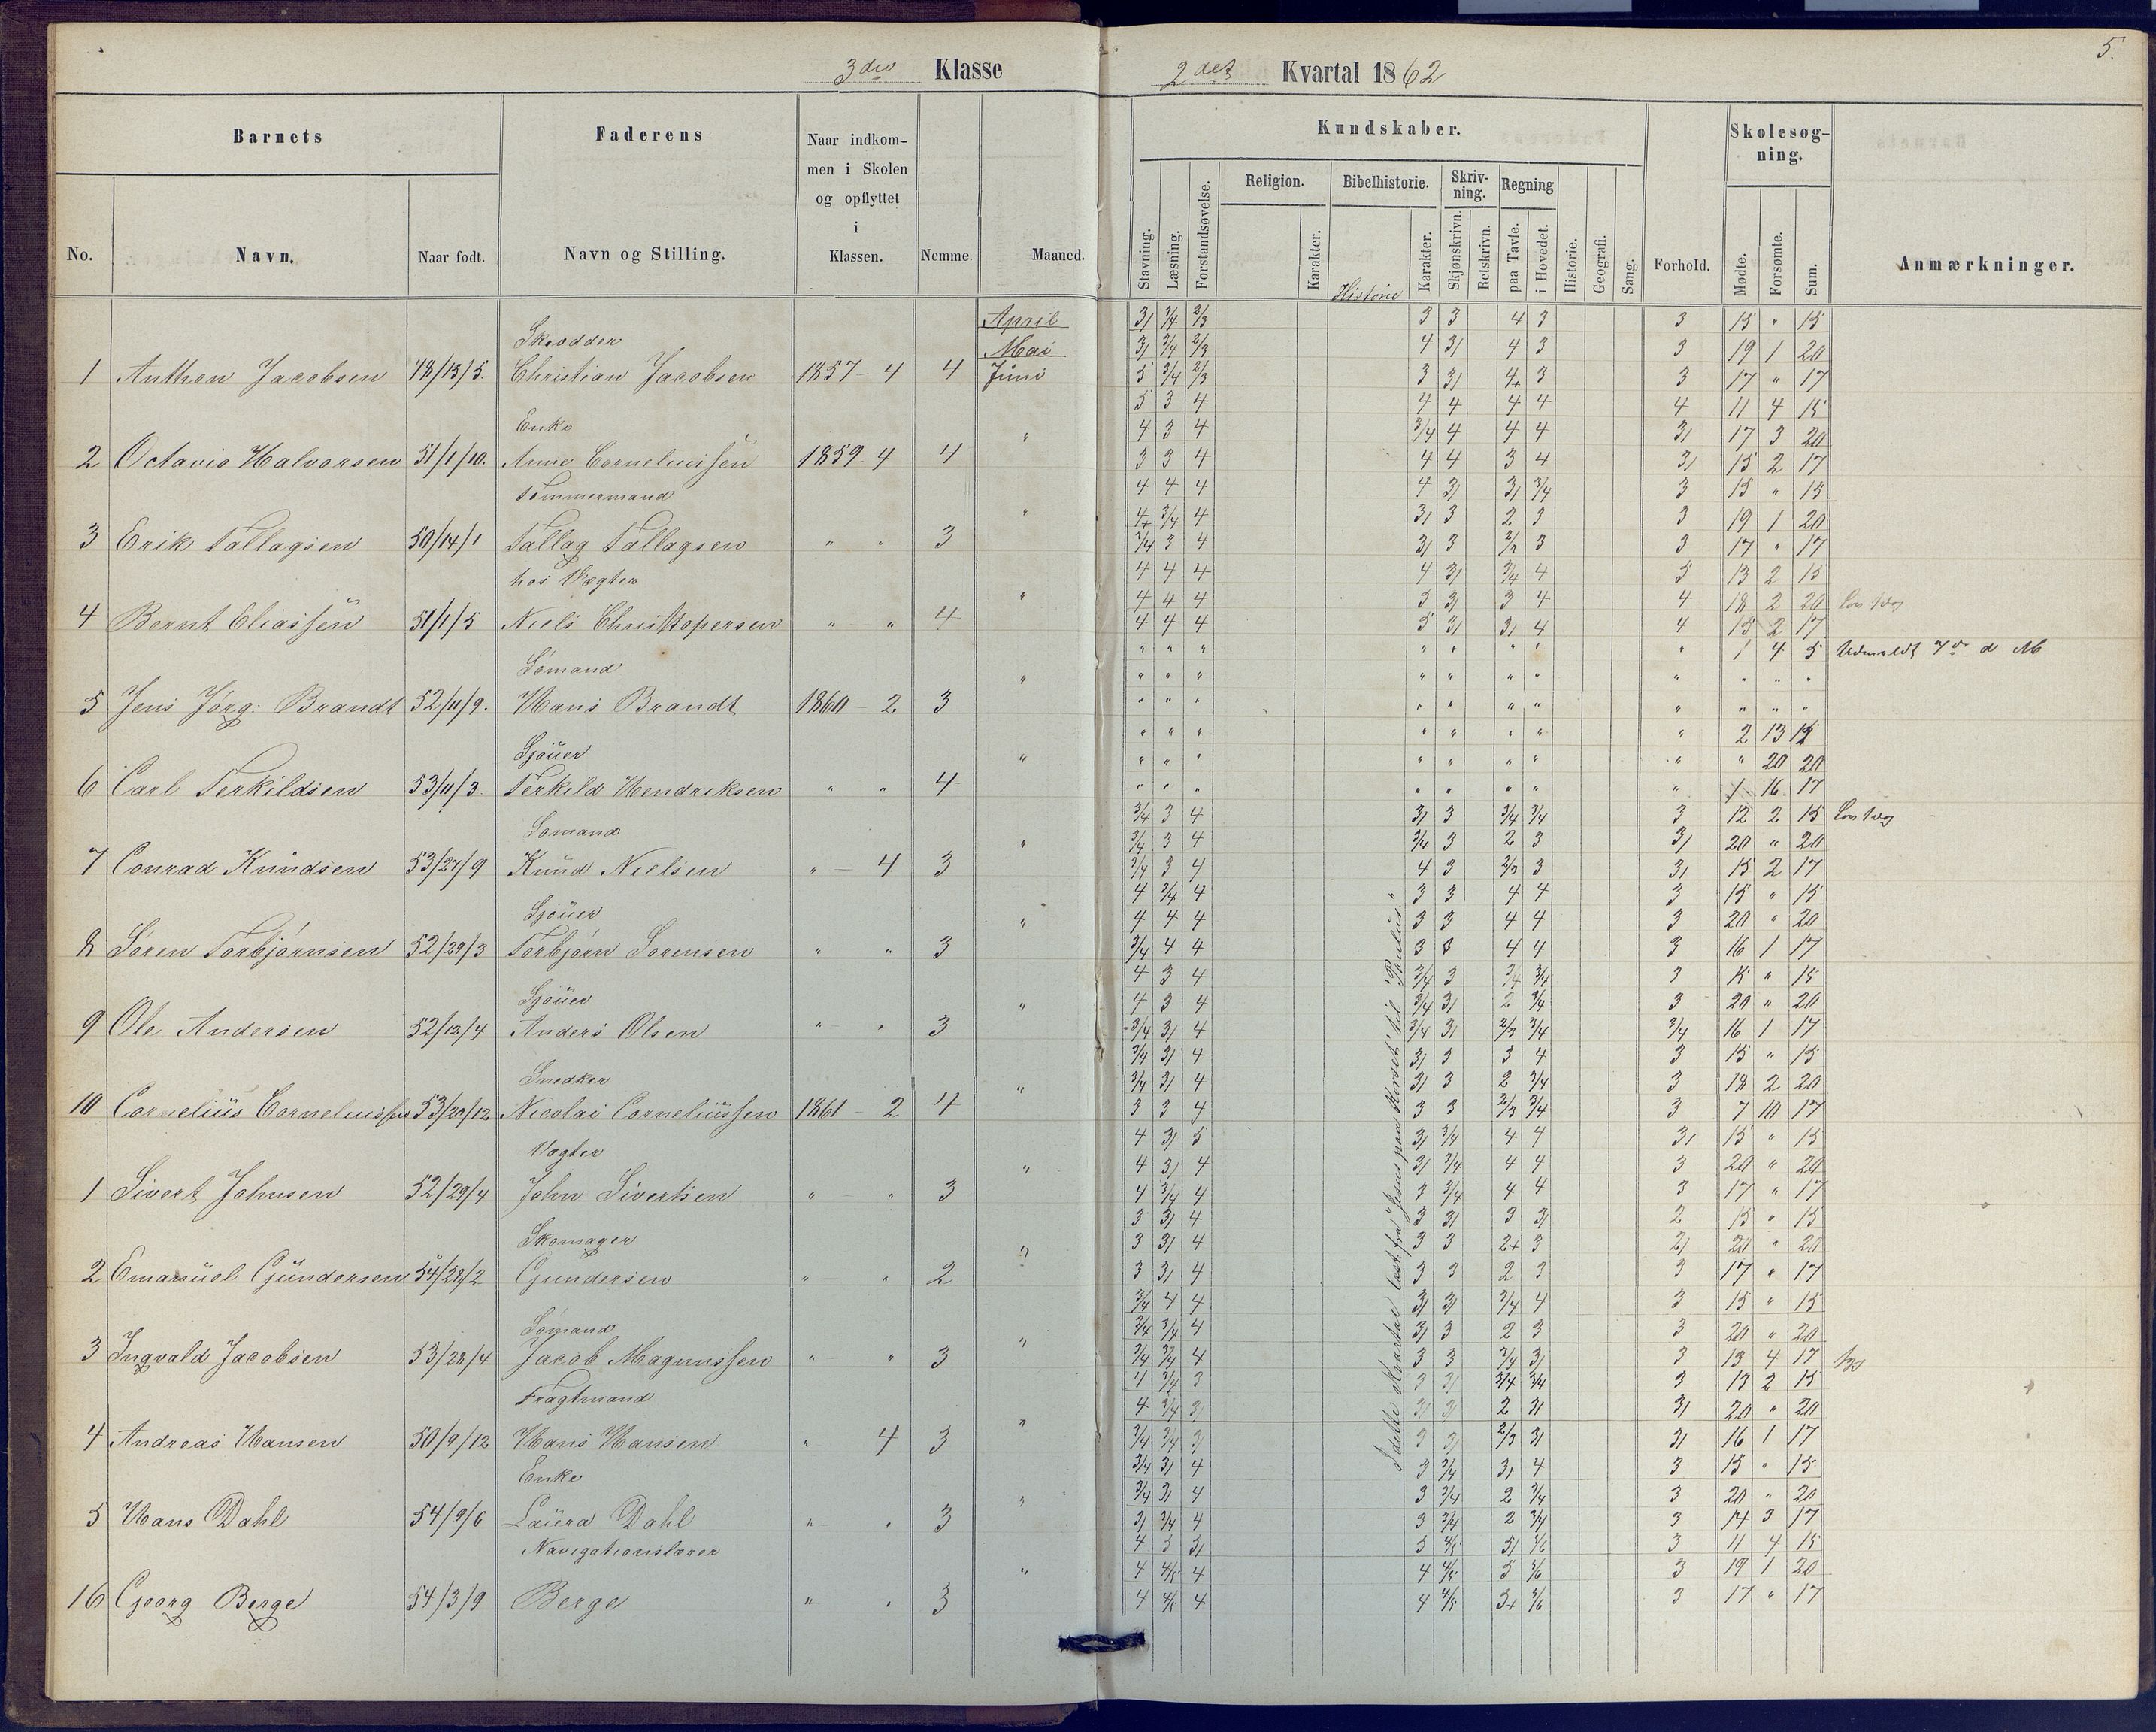 5.
3die Klasse 2det Kvartal 1862
Barnets Faderens Naar indkommen i Skolen og opflyttet i Klassen. Nemme. Maaned. Kundskaber. Forhold. Skolesøgning. Anmærkninger.
No. Navn. Naar født. Navn og Stilling.
Stavning. Læsning. Forstandsøvelse. Religion. Karakter. Bibelhistorie. Historie Karakter. Skrivning. Skjønskrivn. Retskrivn. Regning paa Tavle. i Hovedet. Historie. Geografi. Sang. Mødte. Forsømte. Sum.
Skrædder April 3) 3/4 2/3 3 3 4 3 3 15 " 15
Mai 3) 3/4 2/3 4 3) 4 3 3 19 1 20
1 Anthon Jacobsen 48/13/5. Christian Jacobsen 1857 - 4 4 Juni 3 3/4 2/3 3 3) 4+ 3 3 17 " 17
3 3 4 4 4 4 4 4 11 4 15
Enke " 4 3 4 3/4 4 4 4 3) 17 3 20
2 Octavio Halvorsen 51/1/10. Anne Corneliussen 1859 4 4 3 3 4 4 4 3 4 3) 15 2 17
Tømmermand 4 4 4 4 3) 3) 3/4 3 15 " 15
" 4+ 3/4 4 3) 3 2 3 3 19 1 20
3 Erik Tallagsen 50/14/1 Tallag Tallagsen " " 3 3/4 3 4 3) 3 2/3 3 3 17 " 17
hos Vægter 4 4 4 4 3) 3/4 4 3 13 2 15
" 4 4 4 3 3) 3 4 4 18 2 20
4 Bernt Eliassen 51/1/5 Niels Christopersen " - " 4 4 4 4 5 3) 3) 4 4 15 2 17
" " " " " " " " 1 4 5 Udmeldt 7de d M
Sømand " " " " " " " " " " " "
5 Jens Jörg: Brandt 52/11/9. Hans Brandt 1860 - 2 3 " " " " " " " " " " "
" " " " " " " " 2 13 15
Sjouer " " " " " " " " " " 20 20
6 Carl Terkildsen 53/11/3. Terkild Hendriksen " " 4 " " " " " " " " 1 16 17
3/4 3 4 3) 3 3/4 3/4 3 12 2 15
Sømand " 3/4 3 4 3/4 3 2 3 3) 20 " 20
7 Conrad Knudsen 53/27/9 Knud Nielsen " - 4 3 3/4 3 4 4 3 2/3 3 3) 15 2 17
4 3/4 4 3 3 4 4 3 15 " 15
Sjouer " 4 4 4 3 3 4 4 3 20 " 20
8 Sören Torbjörnsen 52/29/3 Torbjörn Sorensen " " 3 3/4 4 4 3 3 4 4 3 16 1 17
4 3 4 3/4 3 3/4 3/4 3 15 " 15
Sjouer " 4 3 4 3/4 3) 2 3/4 3 20 " 20
9 Ole Andersen 52/13/4 Anders Olsen " - " 3 3/4 3) 4 3/4 3) 2/3 3/4 3/4 16 1 17
3/4 3) 4 3) 3 3 4 3 15 " 15
Snedker " 3/4 3) 4 3) 3 2 3/4 3 18 2 20
10 Cornelius Corneliussen 53/20/12 Nicolai Corneliussen 1861 - 2 4 3 3 4 3 3 2/3 3/4 3 7 10 17
4 3) 5 3) 3/4 4 4 3) 15 " 15
Vægter " 4 3) 4 3) 3/4 4 4 3 20 " 20
1 Sivert Johnsen 52/29/4 John Sivertsen " " 3 4 3/4 4 3 3/4 4 4 3 17 " 17
3 3) 4 3 3) 3 3) 2 15 " 15
Skomager " 3 3) 4 3 3 2+ 3 2) 20 " 20
2 Emanuel Gundersen 54/28/2 Gundersen " " 2 3 3) 4 3 3 2 3 3 17 " 17
3/4 4 4 3) 3) 3/4 4 3 15 " 15
Sømand " 3/4 3/4 4 3) 3 2 3 3 20 " 20
3 Ingvald Jacobsen 53/28/4 Jacob Magnussen " " 3 3/4 3/4 4 3 3 3/4 3) 3 13 4 17
Fragtmand 4 3/4 3 3 3) 3/4 3/4 3 13 2 15
" 4 3/4 3) 3) 3) 2 3) 3) 20 " 20
4 Andreas Hansen 50/9/12 Hans Hansen " 4 3 3/4 3/4 3) 3 3) 2/3 3) 3) 16 1 17
Enke 3/4 3) 4 3 3/4 3) 4 3 15 " 15
" 3/4 3) 4 3 3/4 2 3/4 3 20 " 20
5 Hans Dahl 54/9/6 Laura Dahl " " 3 3) 3/4 4 3 3/4 2 3/4 3 14 3 17
Navigationslærer 4 5 3) 5 4/5 5) 5/6 3 11 4 15
" 4 4/5 4 4 4/5 5 5/6 3 19 1 20
16 Georg Berge 54/3/9 Berge " " 3 4 4/5 4 4 4/5 3+ 5/6 3 17 " 17
I dette Kvartal læst fra "Jesus paa Korset" til "Paulus."